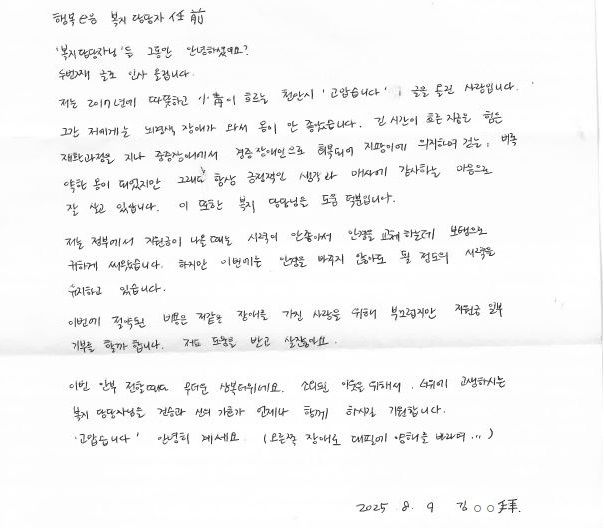 행복e음 복지 담당자 任 前
'복지담당자님'들 그동안 안녕하셨어요?
두번째 글로 인사 올립니다.
저는 2017년에 따뜻하고 人情이 흐르는 천안시 '고맙습니다' 글을 올린 사람입니다.
그간 저에게는 뇌경색 장애가 와서 몸이 안 좋았습니다. 긴 시간이 흐른 지금은 힘든
재활과정을 지나 중증장애에서 경증장애인으로 회복되어 지팡이에 의지하여 걷는, 비록
약한 몸이 되었지만 그래도 항상 긍정적인 생각과 매사에 감사하는 마음으로
잘 살고 있습니다. 이 또한 복지 담당님을 도움 덕분입니다.
저는 정부에서 지원금이 나올때는 시력이 안좋아서 안경을 교체하는데 보탬으로
귀하게 써왔습니다. 하지만 이번에는 안경을 바꾸지 않아도 될 정도의 시력을
유지하고 있습니다.
이번에 절약된 비용은 저같은 장애를 가진 사람을 위해 부끄럽지만 지원금 일부
기부를 할까 합니다. 저도 도움을 받고 살잖아요.
이번 안부 전할때가 무더운 삼복더위네요. 소외된 이웃을 위해서, 더위에 고생하시는
복지 담당자님을 건승과 신의 가호가 언제나 함께 하시길 기원합니다.
'고맙습니다' 안녕히 계세요. (오른쪽 장애로 대필에 양해를 바라며...)
2025. 8. 9 김○○拜.